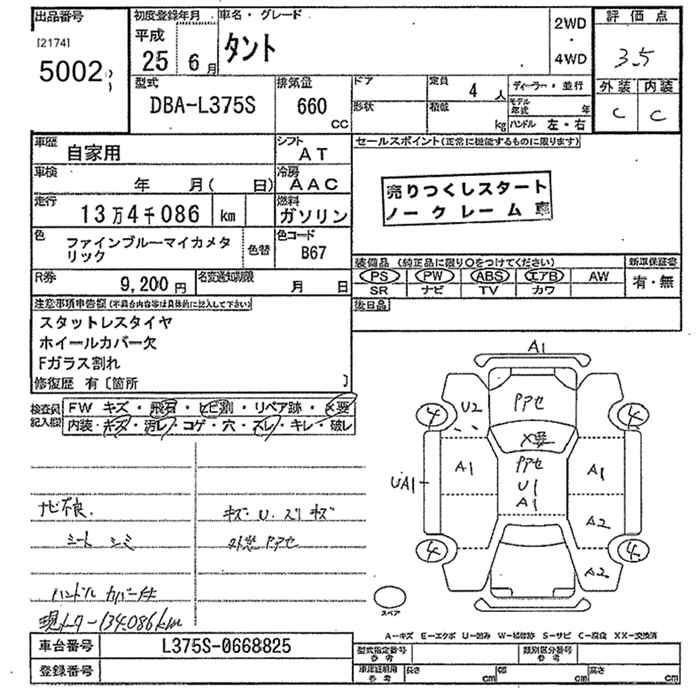 出品番号
[2174]
5002
初度登録年月
平成
25 6月
車名・グレード
タント
2WD
・
4WD
評価点
3.5
外装 内装
C C
型式
DBA-L375S
排気量
660
CC
ドア
定員 4 人
形状
積載 kg
ディーラー・並行
モデル年式 年
ハンドル 左・右
車歴
自家用
シフト
AT
車検
年 月( 日)
冷房
AAC
走行
13万4千086 km
燃料
ガソリン
色
ファインブルーマイカメタリック
色替
色コード
B67
R券
9,200円
名変通知期限
月 日
セールスポイント(正常に機能するものに限ります)
売りつくしスタート
ノークレーム 車
装備品(純正品に限り○をつけてください)
PS PW ABS エアB AW
SR ナビ TV カワ
新車保証書
有・無
後日品
注意事項申告欄(不具合内容等は具体的に記入して下さい)
スタットレスタイヤ
ホイールカバー欠
Fガラス割れ
修復歴 有〔箇所 〕
検査員記入欄
FW キズ・飛石・ヒビ割・リペア跡・×要
内装・キズ・汚レ・コゲ・穴・スレ・キレ・破レ
ナビ不良.
シート シミ
ハンドル カバー付
現メーター134086km
キズ・U.スリキズ
外装 PPセ
A1
4
U2
PPセ
4
×要
A1
PPセ
U1
A1
A1
UA1
A2
4
4
A2
スペア
A-キズ E-エクボ U-凹み W-補修跡 S-サビ C-腐食 XX-交換済
車台番号
L375S-0668825
登録番号
型式指定番号
参考
類別区分番号
参考
車庫証明用
参考
長さ cm
幅 cm
高さ cm